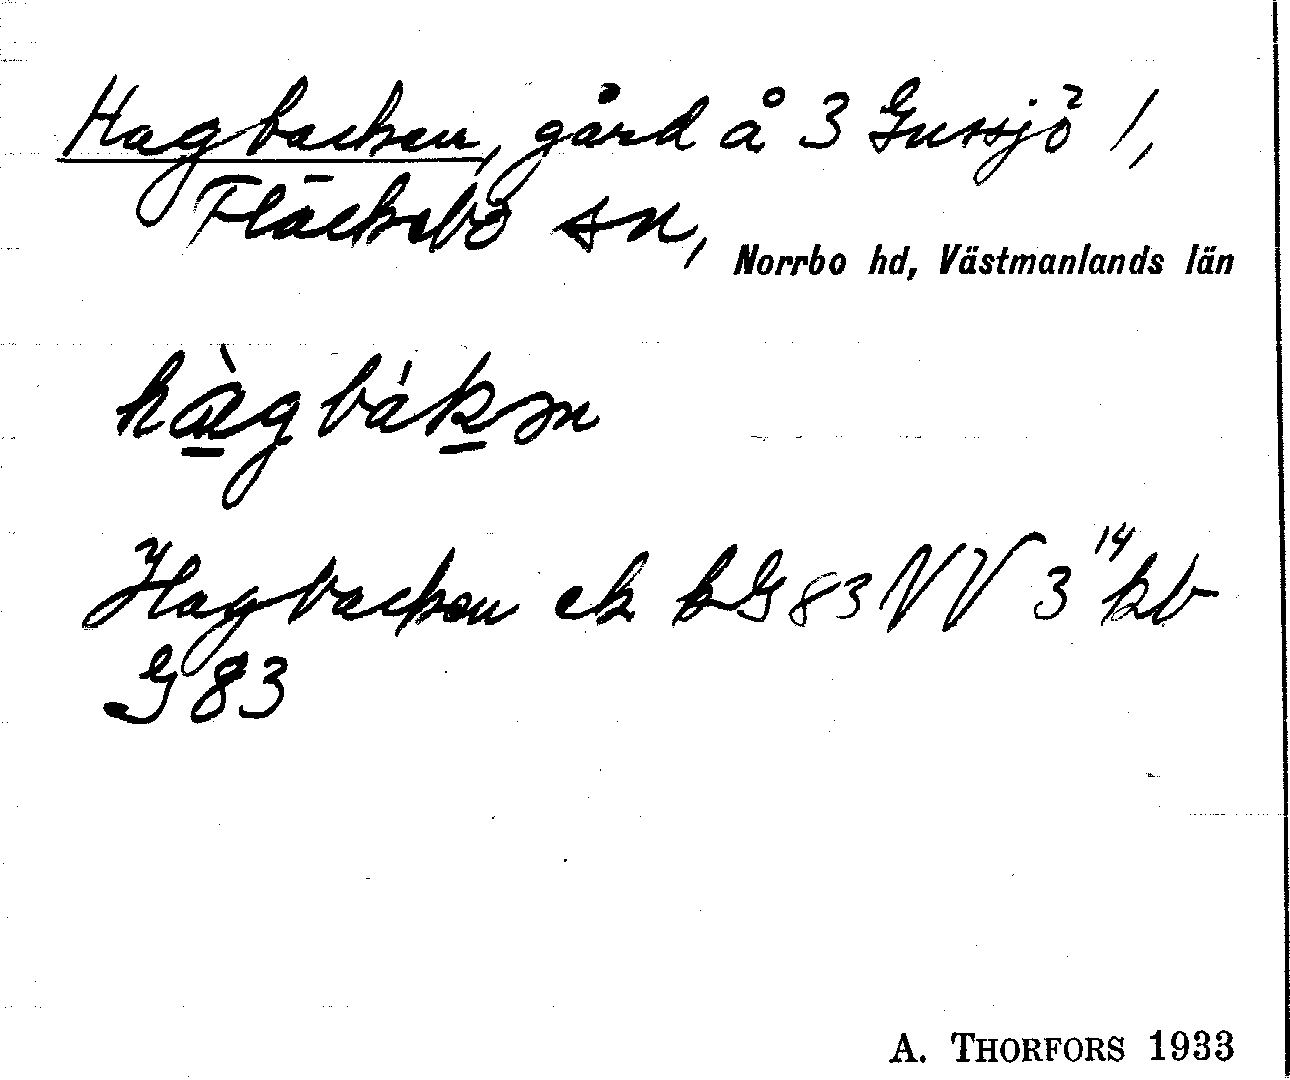 Hagbacken, gård å 3 Gussjö 1,
Fläckebo sn,
Norrbo hd, Västmanlands län
hàgbákən
Hagbacken ek kG83NV 3¹⁴ kb
G83
A. THORFORS 1933